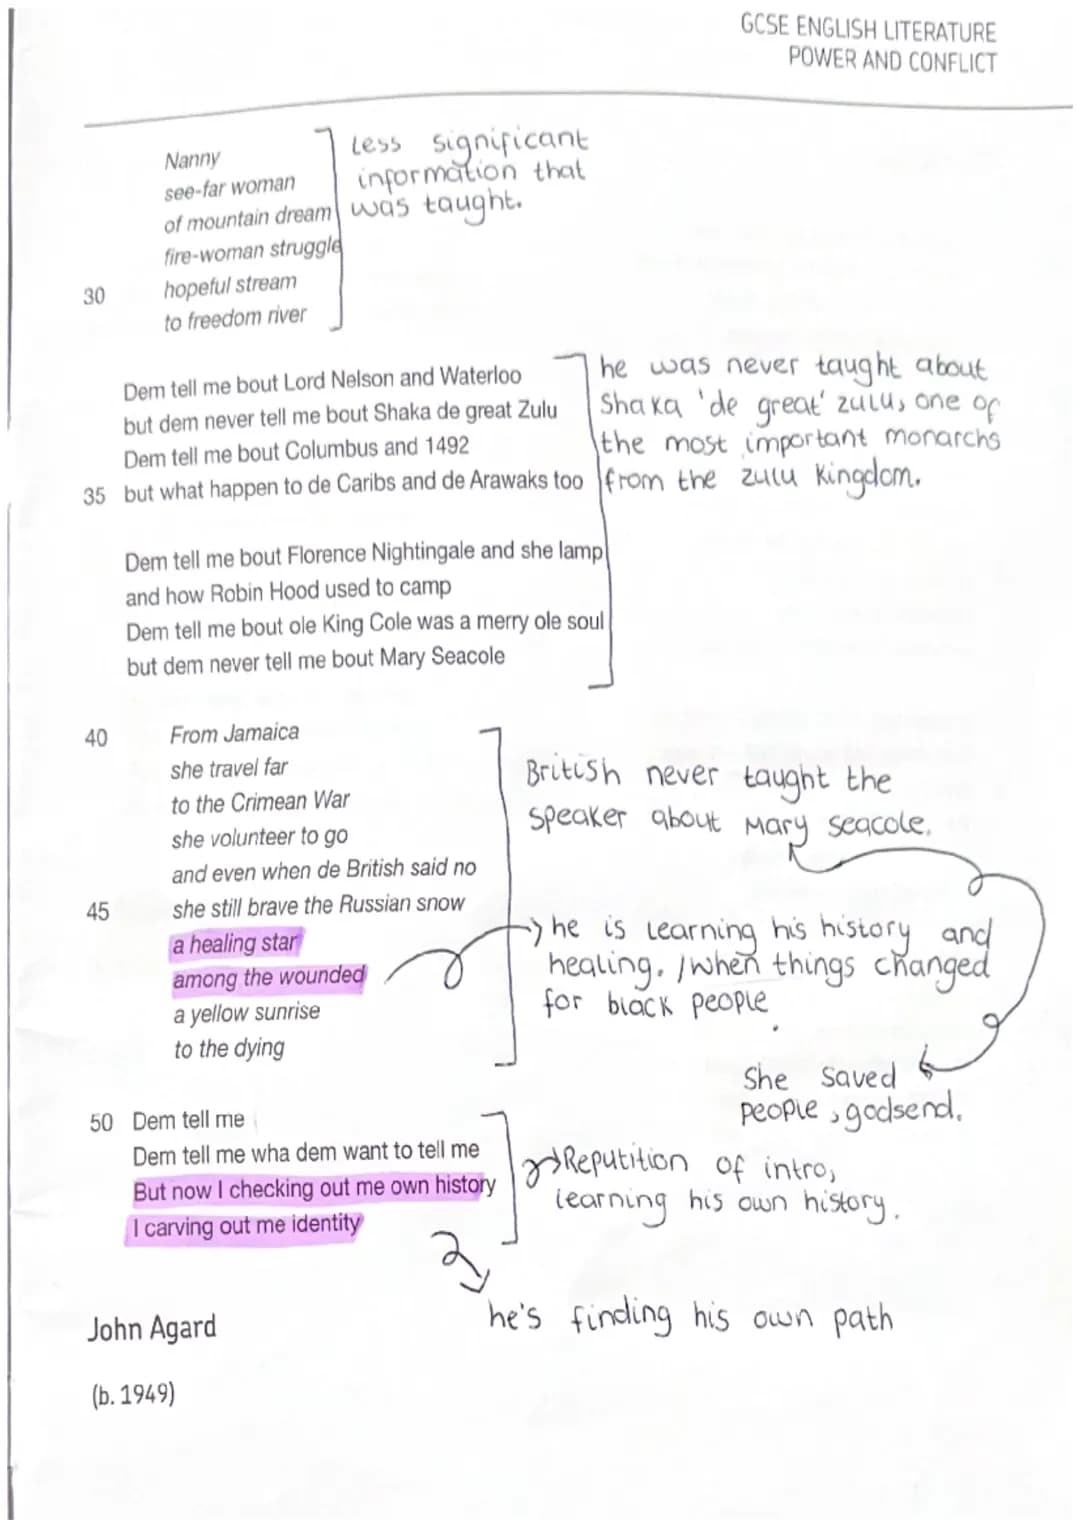 GCSE ENGLISH LITERATURE
POWER AND CONFLICT
Nanny
see-far woman
of mountain dream
fire-woman struggle
30 hopeful stream
to freedom river
Less significant
information that
was taught.
Dem tell me bout Lord Nelson and Waterloo
but dem never tell me bout Shaka de great Zulu
Dem tell me bout Columbus and 1492
35 but what happen to de Caribs and de Arawaks too
he was never taught about
Shaka 'de great' zulu, one of
the most important monarchs
from the zulu kingdom.
Dem tell me bout Florence Nightingale and she lamp
and how Robin Hood used to camp
Dem tell me bout ole King Cole was a merry ole soul
but dem never tell me bout Mary Seacole
40 From Jamaica
she travel far
to the Crimean War
she volunteer to go
and even when de British said no
45 she still brave the Russian snow
a healing star
among the wounded
a yellow sunrise
to the dying
British never taught the
speaker about Mary seacole.
he is learning his history and
healing. /when things changed
for black people
She saved
people, godsend.
50 Dem tell me
Dem tell me wha dem want to tell me
But now I checking out me own history
I carving out me identity
Reputition of intro,
learning his own history.
he's finding his own path
John Agard
(b. 1949)